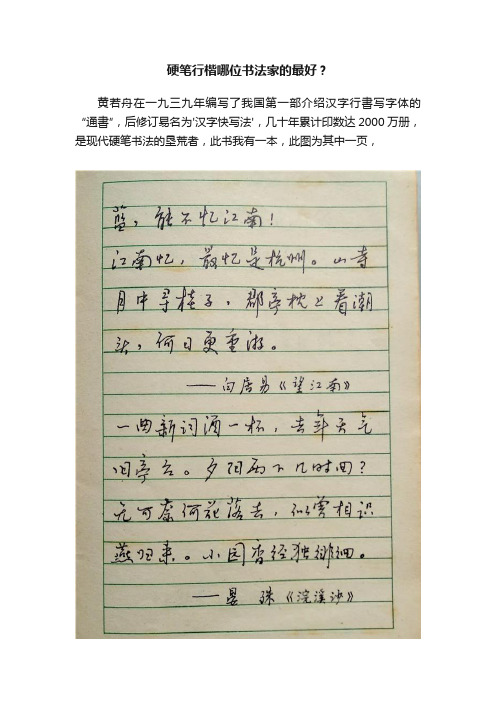 硬笔行楷哪位书法家的最好？
黄若舟在一九三九年编写了我国第一部介绍汉字行書写字体的
“通書”，后修订易名为'汉字快写法'，几十年累计印数达2000万册，
是现代硬笔书法的垦荒者，此书我有一本，此图为其中一页，
蓝，能不忆江南！
江南忆，最忆是杭州。山寺
月中寻桂子，郡亭枕上看潮
头，何日更重游。
——白居易《望江南》
一曲新词酒一杯，去年天气
旧亭台。夕阳西下几时回？
无可奈何花落去，似曾相识
燕归来。小园香径独徘徊。
——晏 殊《浣溪沙》